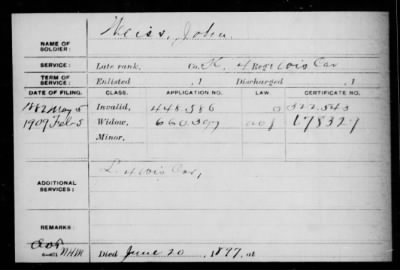 Weiss, John
NAME OF SOLDIER:
SERVICE: Late rank, Co. K, 4 Reg't Wis Cav
TERM OF SERVICE: Enlisted , 1 Discharged , 1
DATE OF FILING. CLASS. APPLICATION NO. LAW. CERTIFICATE NO.
1882 May 5 Invalid, 448,586
1909 Feb 5 Widow,
Minor,
ADDITIONAL SERVICES: L. 4 Wis Cav,
REMARKS:
Died June 20, 1897, at